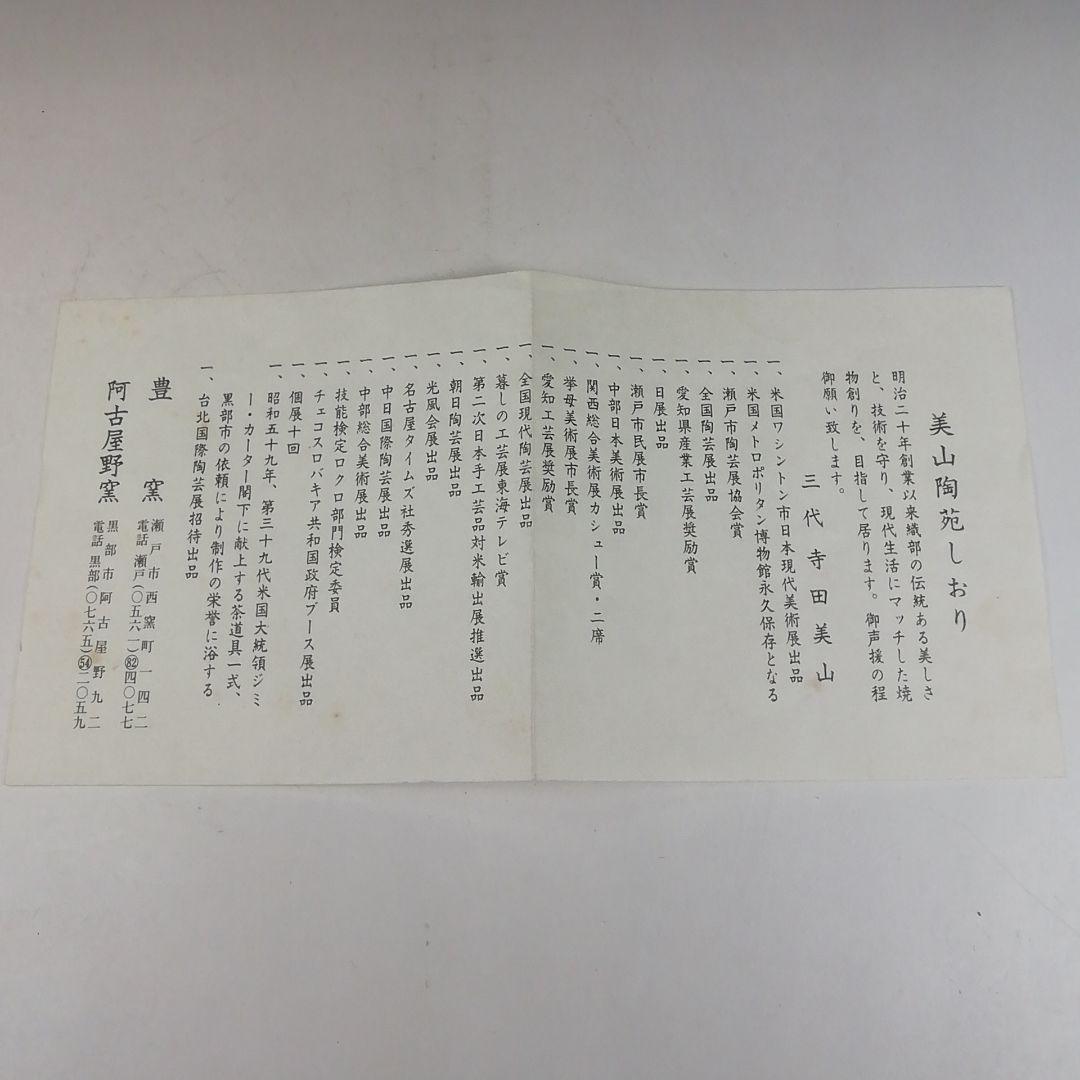 美山陶苑しおり
明治二十年創業以来織部の伝統ある美しさ
と、技術を守り、現代生活にマッチした焼
物創りを、目指して居ります。御声援の程
御願い致します。
三代 寺田美山
一、米国ワシントン市日本現代美術展出品
一、米国メトロポリタン博物館永久保存となる
一、瀬戸市陶芸展協会賞
一、全国陶芸展出品
一、愛知県産業工芸展奨励賞
一、日展出品
一、瀬戸市民展市長賞
一、中部日本美術展出品
一、関西総合美術展カシュー賞・二席
一、挙母美術展市長賞
一、愛知工芸展奨励賞
一、全国現代陶芸展出品
一、暮しの工芸展東海テレビ賞
一、第二次日本手工芸品対米輸出展推選出品
一、朝日陶芸展出品
一、光風会展出品
一、名古屋タイムズ社秀選展出品
一、中日国際陶芸展出品
一、中部総合美術展出品
一、技能検定ロクロ部門検定委員
一、チェコスロバキア共和国政府ブース展出品
一、個展十回
一、昭和五十九年、第三十九代米国大統領ジミ
ー・カーター閣下に献上する茶道具一式、
黒部市の依頼により制作の栄誉に浴する.
一、台北国際陶芸展招待出品
豊窯 瀬戸市西窯町一四二
電話 瀬戸(〇五六一)㊷四〇七七
阿古屋野窯 黒部市阿古屋野九二
電話 黒部(〇七六五)54二〇五九